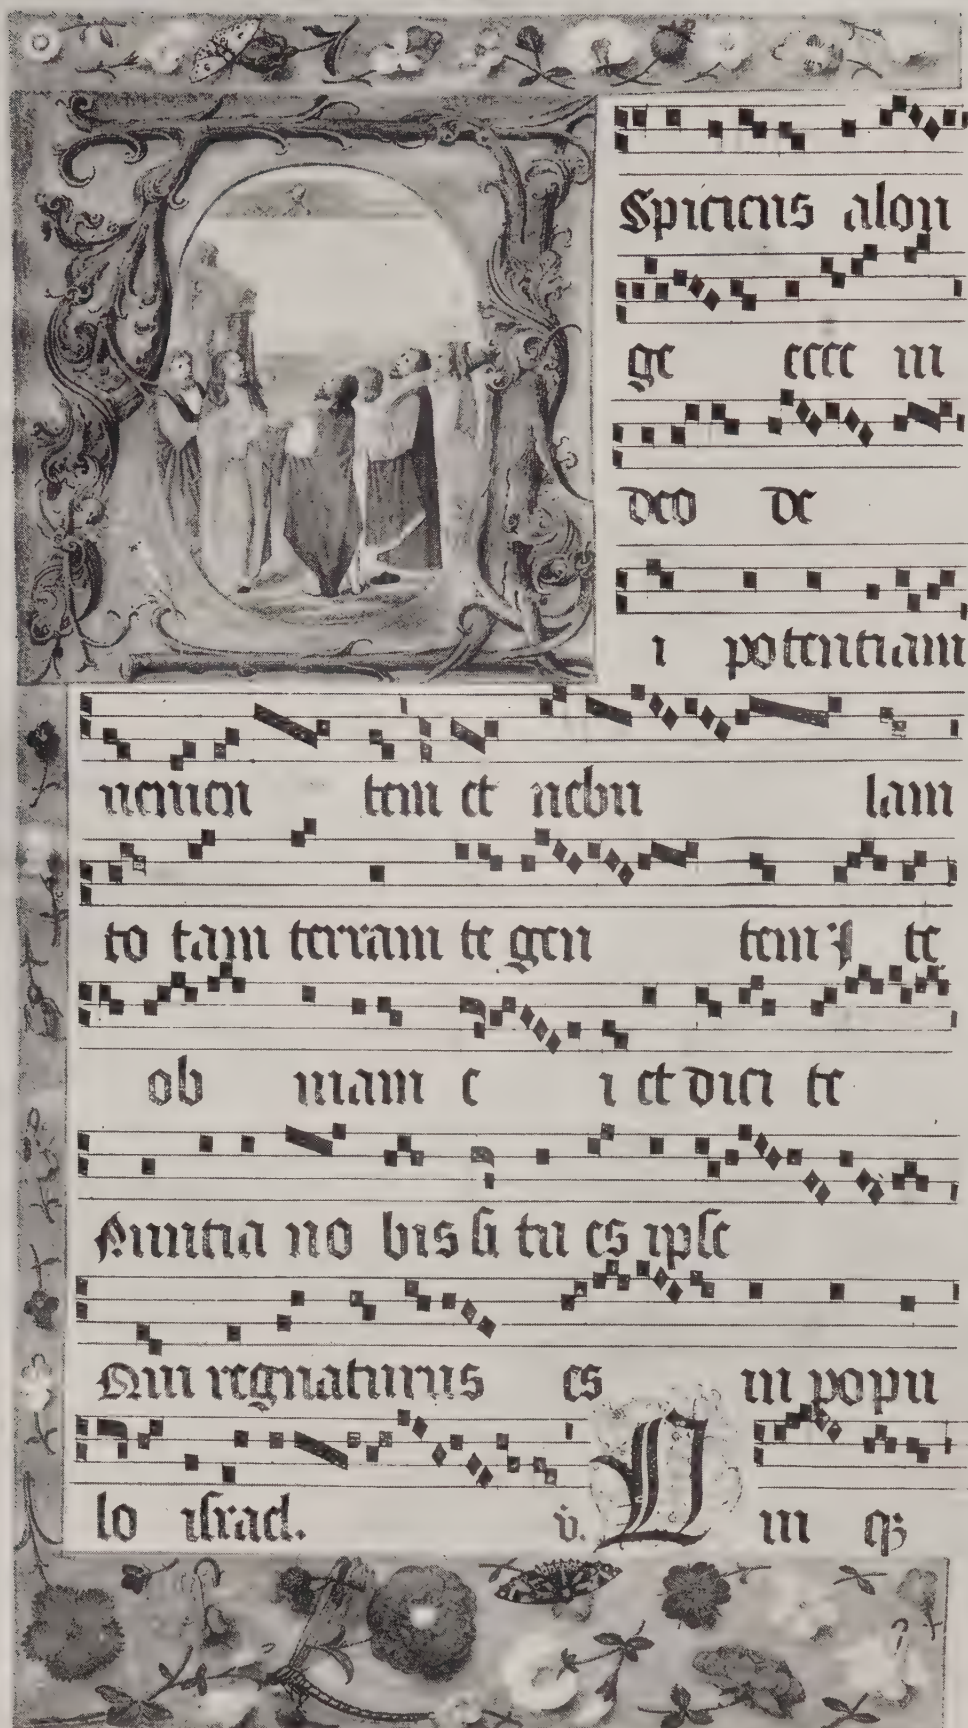 ASpiciens alon
ge ecce vi
deo de
i potentiam
venien tem et nebu lam
to tam terram te gen tem I te
ob viam e i et dici te
Nuntia no bis si tu es ipse
Qui regnaturus es in popu
lo israel. v. Qui qꝫ